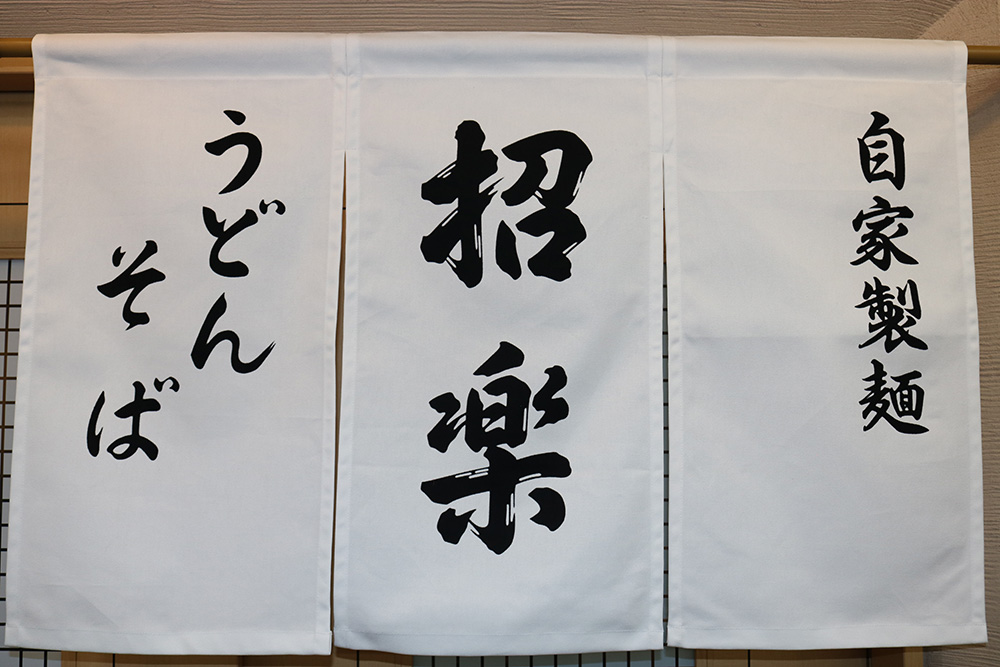 自家製麺
招楽
うどん
そば